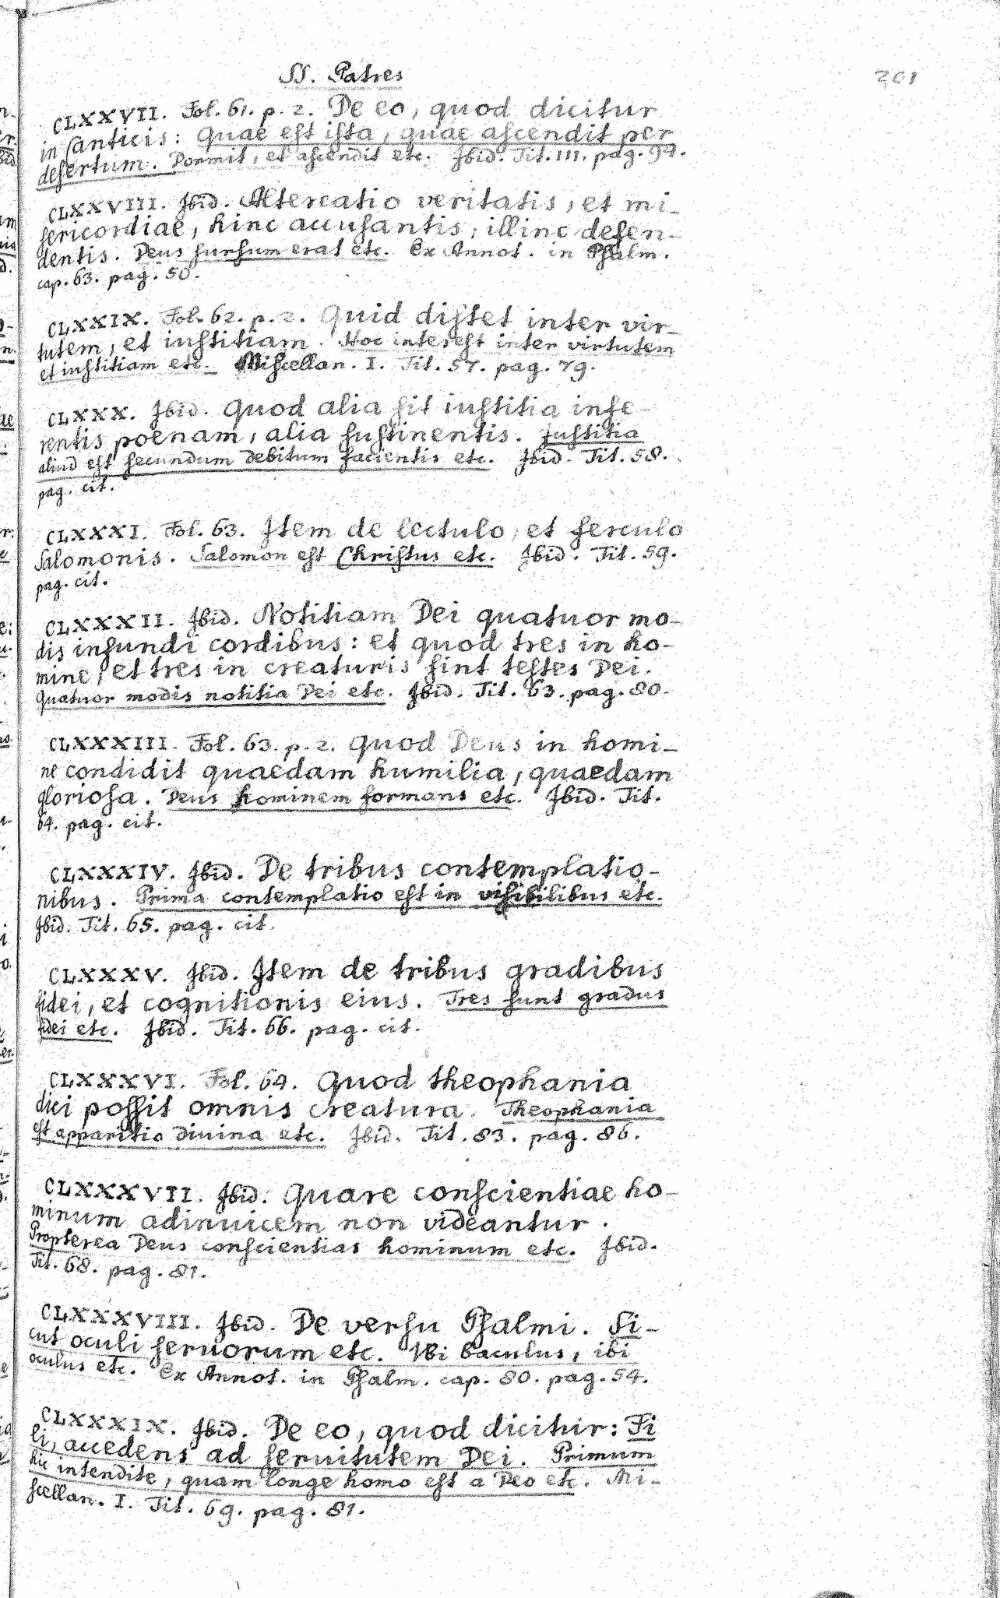 SS. Patres
201
CLXXVII. Fol. 61. p. 2. De eo, quod dicitur
in Canticis: Quae est ista, quae ascendit per
desertum. Dormit, et ascendit etc. Ibid. Tit. 111. pag. 94.
CLXXVIII. Ibid. Altercatio veritatis, et mi-
sericordiae, hinc accusantis, illinc defen-
dentis. Deus sursum erat etc. Ex Annot. in Psalm.
cap. 63. pag. 50.
CLXXIX. Fol. 62. p. 2. Quid distet inter vir-
tutem, et iustitiam. Hoc interest inter virtutem
et iustitiam etc. Miscellan. I. Tit. 57. pag. 79.
CLXXX. Ibid. Quod alia sit iustitia infe-
rentis poenam, alia sustinentis. Iustitia
aliud est secundum debitum facientis etc. Ibid. Tit. 58.
pag. cit.
CLXXXI. Fol. 63. Item de lectulo, et ferculo
Salomonis. Salomon est Christus etc. Ibid. Tit. 59.
pag. cit.
CLXXXII. Ibid. Notitiam Dei quatuor mo-
dis infundi cordibus: et quod tres in ho-
mine, et tres in creaturis sint testes Dei.
Quatuor modis notitia Dei etc. Ibid. Tit. 63. pag. 80.
CLXXXIII. Fol. 63. p. 2. Quod Deus in homi-
ne condidit quaedam humilia, quaedam
gloriosa. Deus hominem formans etc. Ibid. Tit.
64. pag. cit.
CLXXXIV. Ibid. De tribus contemplatio-
nibus. Prima contemplatio est in visibilibus etc.
Ibid. Tit. 65. pag. cit.
CLXXXV. Ibid. Item de tribus gradibus
fidei, et cognitionis eius. Tres sunt gradus
fidei etc. Ibid. Tit. 66. pag. cit.
CLXXXVI. Fol. 64. Quod theophania
dici possit omnis creatura. Theophania
est apparitio divina etc. Ibid. Tit. 83. pag. 86.
CLXXXVII. Ibid. Quare conscientiae ho-
minum adinuicem non videantur.
Propterea Deus conscientias hominum etc. Ibid.
Tit. 68. pag. 81.
CLXXXVIII. Ibid. De versu Psalmi. Si-
cut oculi seruorum etc. Vbi baculus, ibi
oculus etc. Ex Annot. in Psalm. cap. 80. pag. 54.
CLXXXIX. Ibid. De eo, quod dicitur: Fi
li, accedens ad seruitutem Dei. Primum
hic intendite, quam longe homo est a Deo etc. Mi-
scellan. I. Tit. 69. pag. 81.